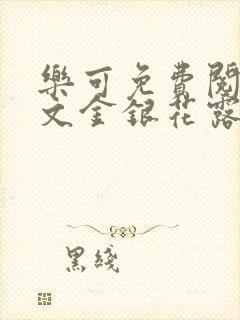 樂可免費閱
文金銀花露
黑綫